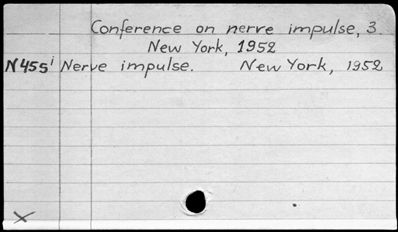 Conference on nerve impulse, 3.
New York, 1952
N455i Nerve impulse. New York, 1952
X